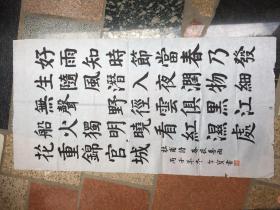 好雨知時節當春乃發
生隨風潛入夜潤物細
無聲野徑雲俱黑江
船火獨明曉看紅濕處
花重錦官城
杜甫詩春夜喜雨